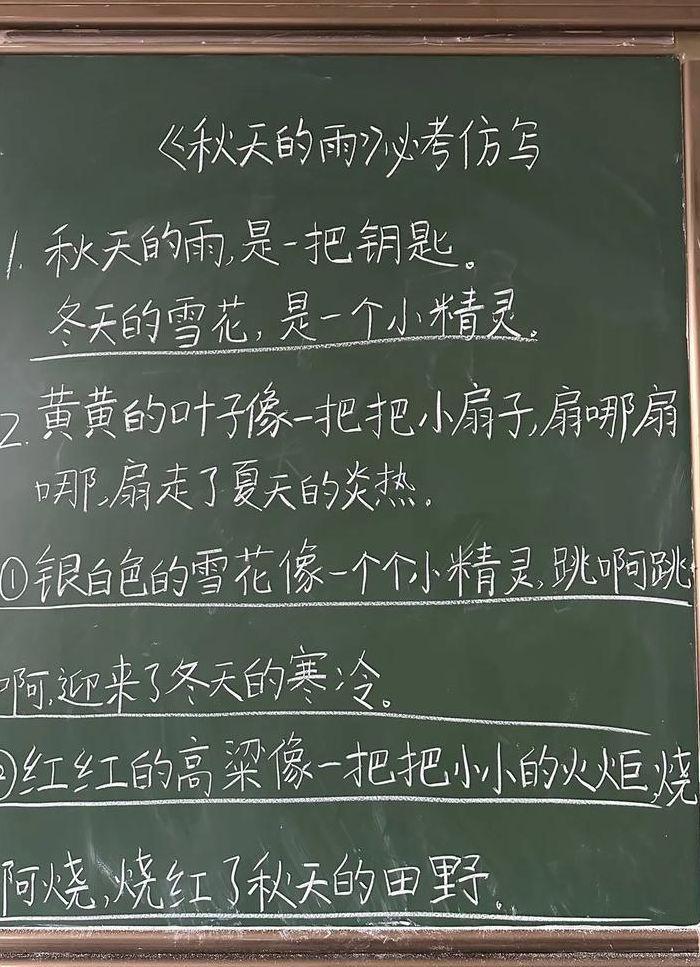 《秋天的雨》必考仿写
1. 秋天的雨,是一把钥匙。
冬天的雪花,是一个小精灵。
2. 黄黄的叶子像一把把小扇子,扇哪扇
哪,扇走了夏天的炎热。
①银白色的雪花像一个个小精灵,跳啊跳
啊,迎来了冬天的寒冷。
②红红的高粱像一把把小小的火炬,烧
阿烧,烧红了秋天的田野。